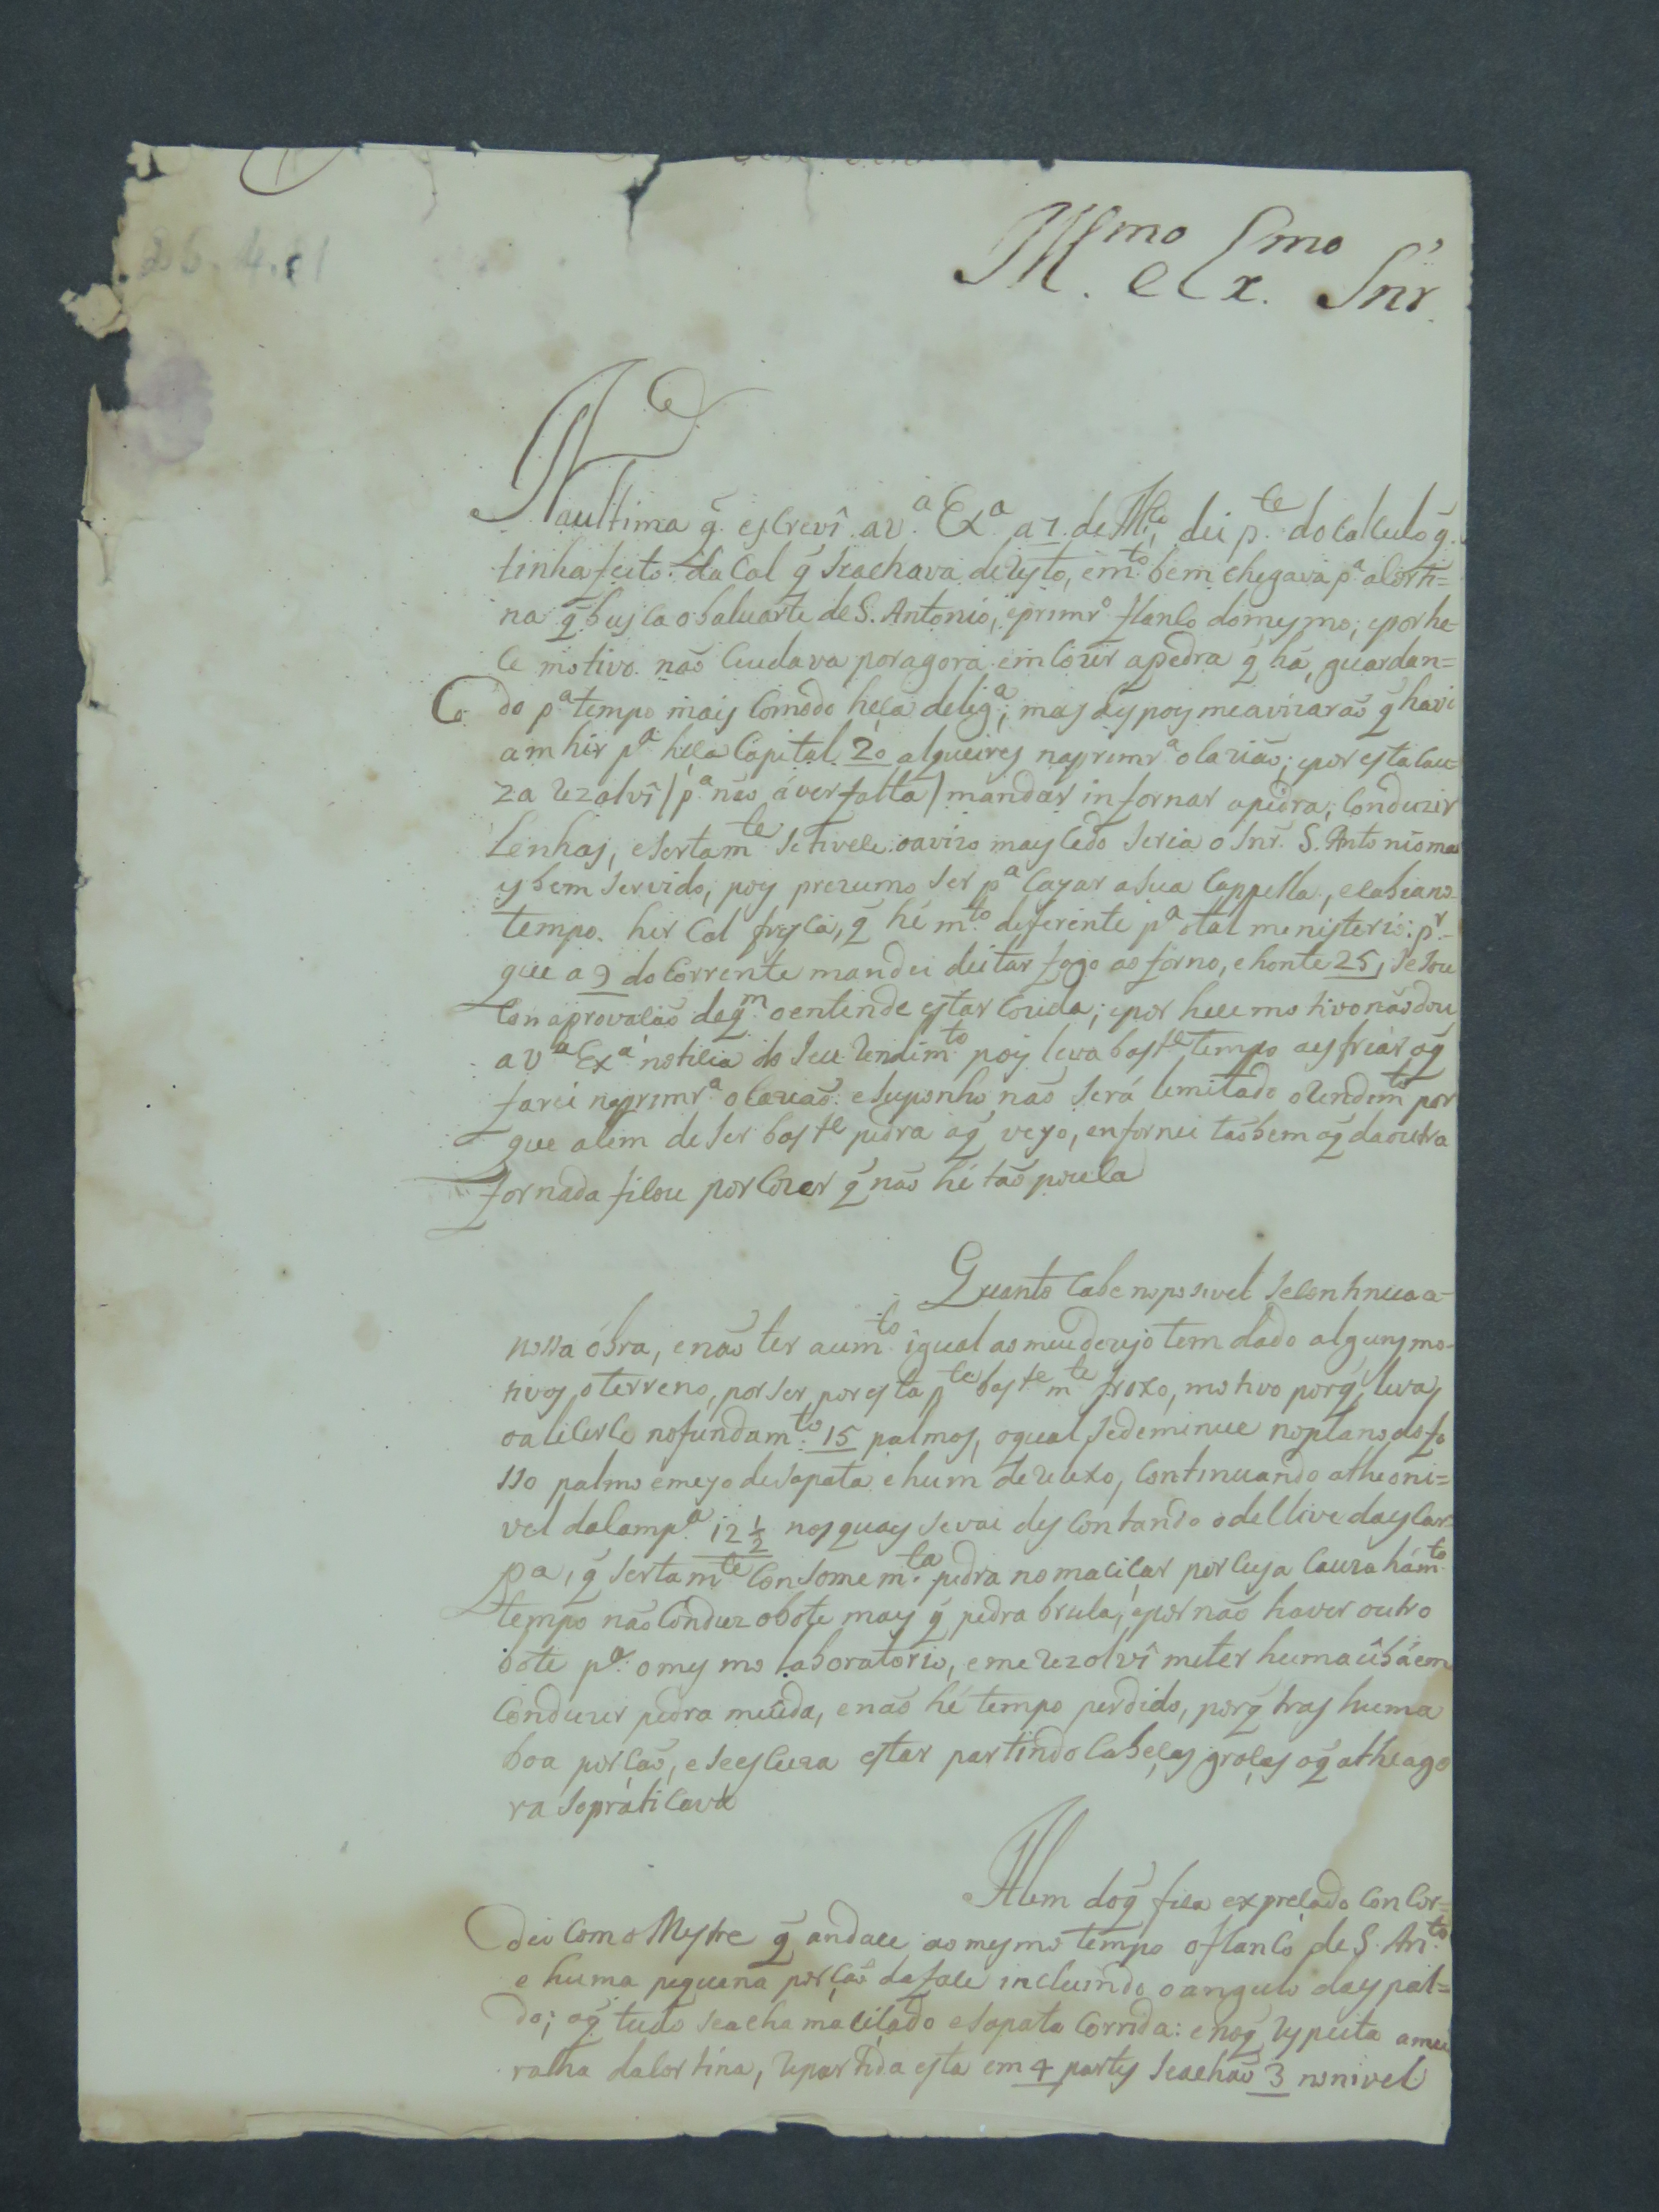 Ill.mo e Ex.mo Snr
Na ultima q̃ escrevî a V.ª Exª a 7 de M.ço, dei p.te do calculo q̃
tinha feito da cal q̃ se achava de resto, e m.to bem chegava p.ª a corti=
na q̃ busca o baluarte de S. Antonio, e primr.º flanco do mesmo; e por he
ce motivo não cuidava por agora em cozer a pedra q̃ há, guardan=
do p.ª tempo mais comodo heça delig.ª; mas despois me avizarão q̃ havi
am hir p.ª heça Capital 20 alqueires na primr.ª ocazião; e por esta cau=
za rezolvî / p.ª não áver falta / mandar infornar a pedra, conduzir
Lenhas, e sertam.te se tivece o avizo mais cedo seria o Snr. S. Antonio ma
is bem servido, pois prezumo ser p.ª cayar a sua Cappella, e cabia no
tempo hir cal fresca, q̃ hé m.to diferente p.ª o tal menisterio: p.r
que a 9 do corrente mandei deitar fogo ao forno, e honte 25, se
con aprovação de q.m o entende estar cozida; e por hece motivo não dou
a V.ª Exª noticia do seu rendim.to pois leva bast.e tempo a esfriar o q̃
farei na primr.ª ocazião e suponho não será lemitado o rendim.to por
que alem de ser bast.e pedra a q̃ veyo, enfornei tãobem a q̃ da outra
fornada ficou por cozer q̃ não hé tão pouca
Quanto cabe no posivel se continua a
nossa óbra, e não ter aum.to igual ao meu dezejo tem dado alguns mo=
tivos o terreno, por ser por esta p.te bast.e m.te froxo, motivo porq̃ leva
o alicerce no fundam.to 15 palmos, o qual se deminue no plano do fo
sso palmo e meyo de sapata e hum de rexo, continuando athe o ni=
vel da camp.ª 12 1/2 nos quais se vai descontando o declive da escar
pa, q̃ sertam.te consome m.ta pedra no maciçar por cuja cauza há m.to
tempo não conduz o bote mais q̃ pedra bruta; e por não haver outro
bote p.ª o mesmo laboratorio, e me rezolvî meter huma ûbá em
conduzir pedra miuda, e não hé tempo perdido, porq̃ tras huma
boa porção, e se escuza estar partindo cabeças groças o q̃ athe ago
ra se praticava
Alem do q̃ fica expreçado concor=
dei com o Mestre q̃ andace ao mesmo tempo o flanco de S. Ant.to
e huma pequena porção da face incluindo o angulo da espal=
do; o q̃ tudo se acha macilçado e sapata corrida: e no q̃ respeita a mu
ralha da cortina, repartida esta em 4 partes se achão 3 no nivel